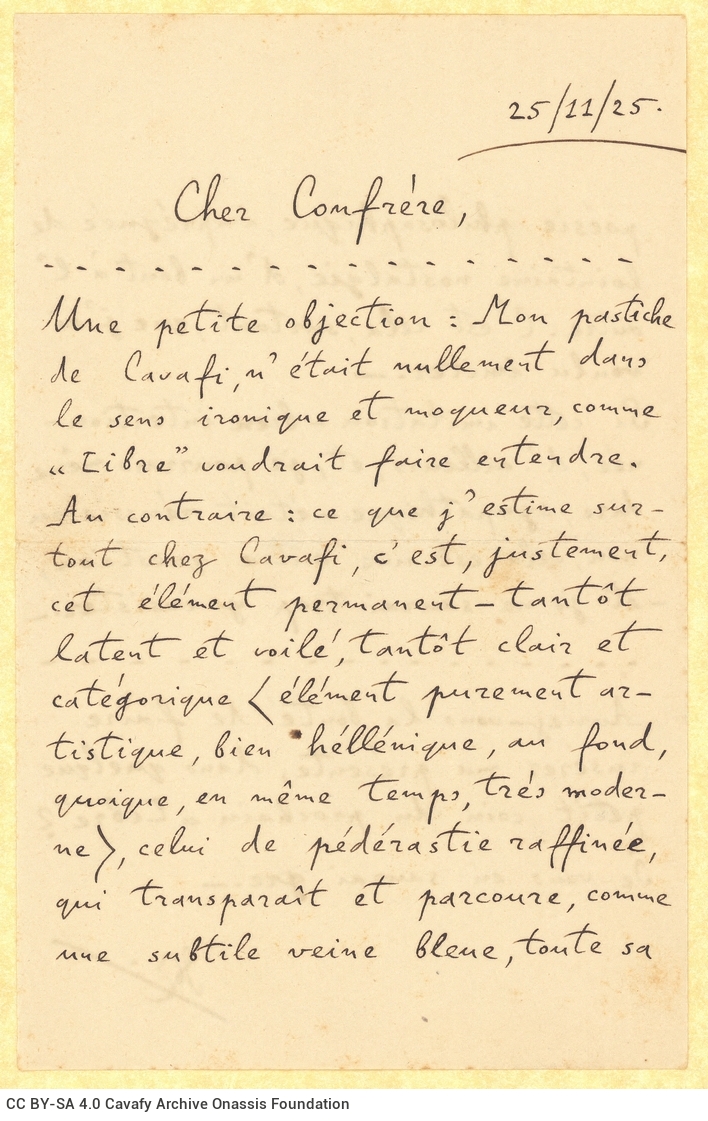 25/11/25.
Cher Confrére,
- - - - - - - - - - - - - - - -
Une petite objection : Mon pastiche
de Cavafi, n'était nullement dans
le sens ironique et moqueur, comme
„Libre” voudrait faire entendre.
Au contraire : ce que j'estime sur-
tout chez Cavafi, c'est, justement,
cet élément permanent – tantôt
latent et voilé, tantôt clair et
catégorique < élément purement ar-
tistique, bien héllénique, au fond,
quoique, en même temps, trés moder-
ne >, celui de pédérastie raffinée,
qui transparaît et parcoure, comme
une subtile veine bleue, toute sa
CC BY-SA 4.0 Cavafy Archive Onassis Foundation